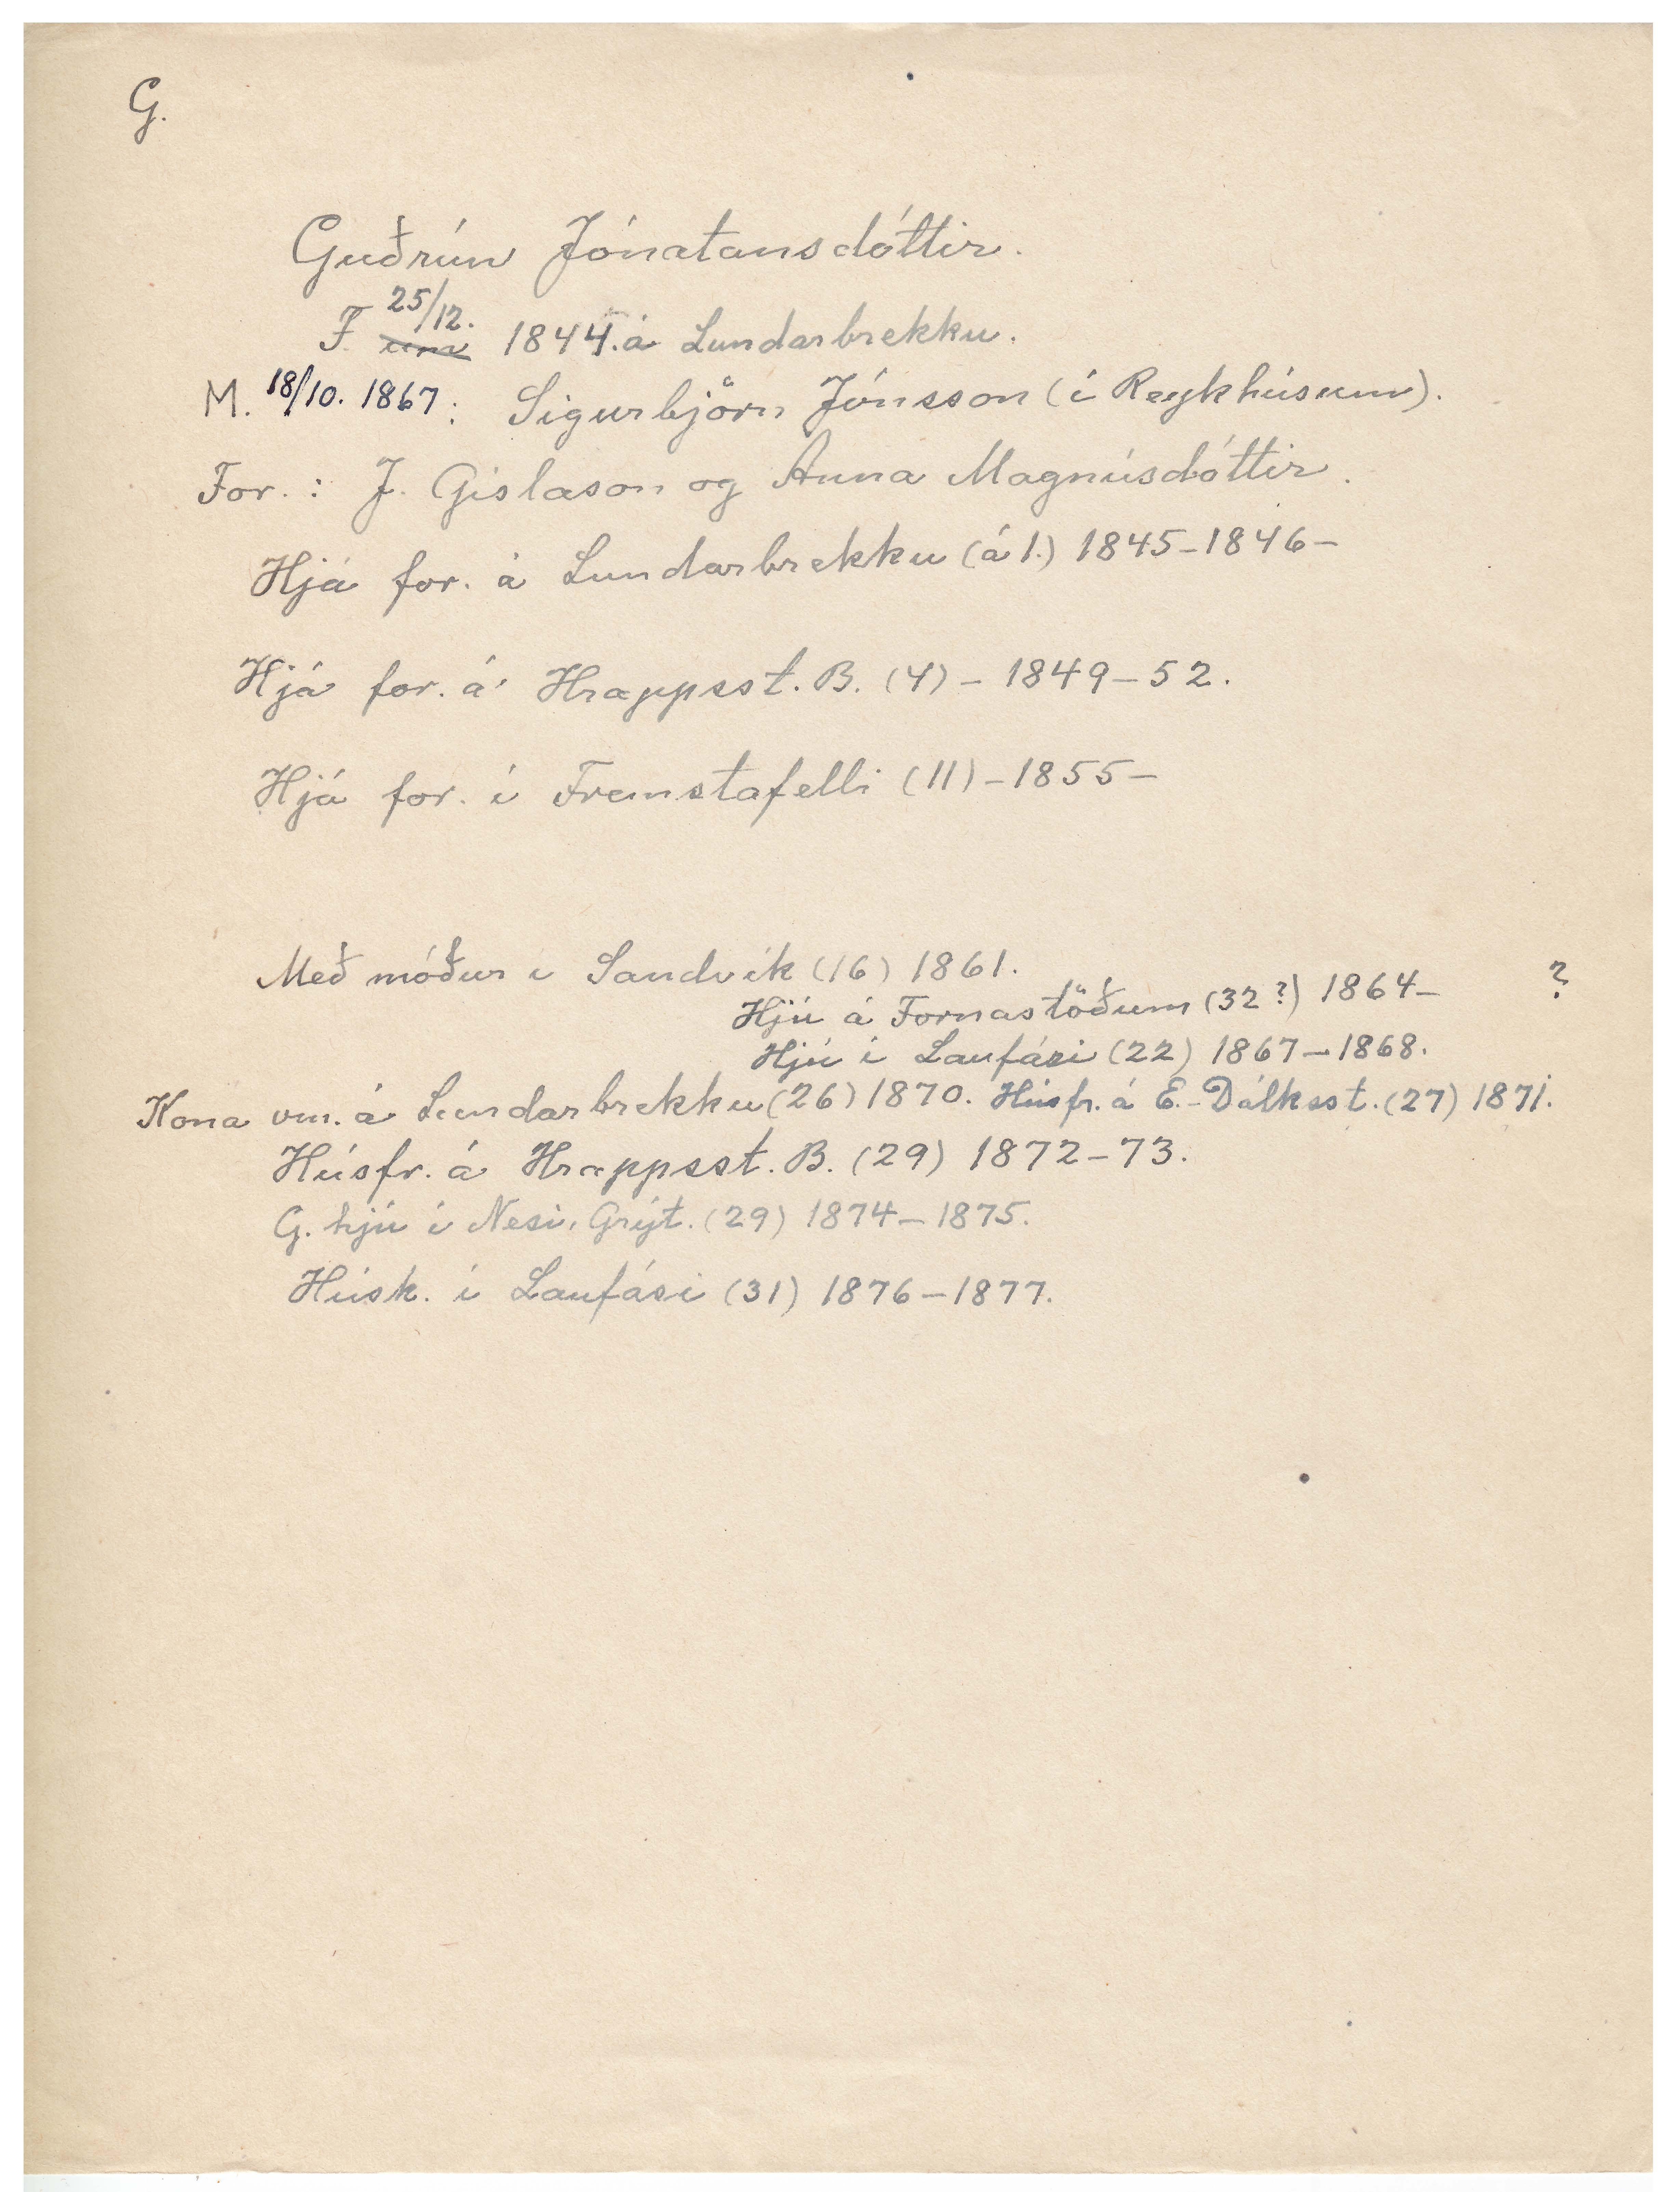 G.
Guðrún Jónatansdóttir.
F. 25/12. ~~um~~ 1844. á Lundarbrekku.
M. 18/10. 1867: Sigurbjörn Jónsson (í Reykhúsum).
For.: J. Gíslason og Anna Magnúsdóttir.
Hjá for. á Lundarbrekku (á 1.) 1845-1846-
Hjá for. á Hrappsst. B. (4) - 1849-52.
Hjá for. í Fremstafelli (11) - 1855-
Með móður í Sandvík (16) 1861.
Hjú á Fornastöðum (32?) 1864- ?
Hjú í Laufási (22) 1867-1868.
Kona vm. á Lundarbrekku (26) 1870. Húsfr. á E.-Dálksst. (27) 1871.
Húsfr. á Hrappsst. B. (29) 1872-73.
G. hjú í Nesi, Grýt. (29) 1874-1875.
Húsk. í Laufási (31) 1876-1877.